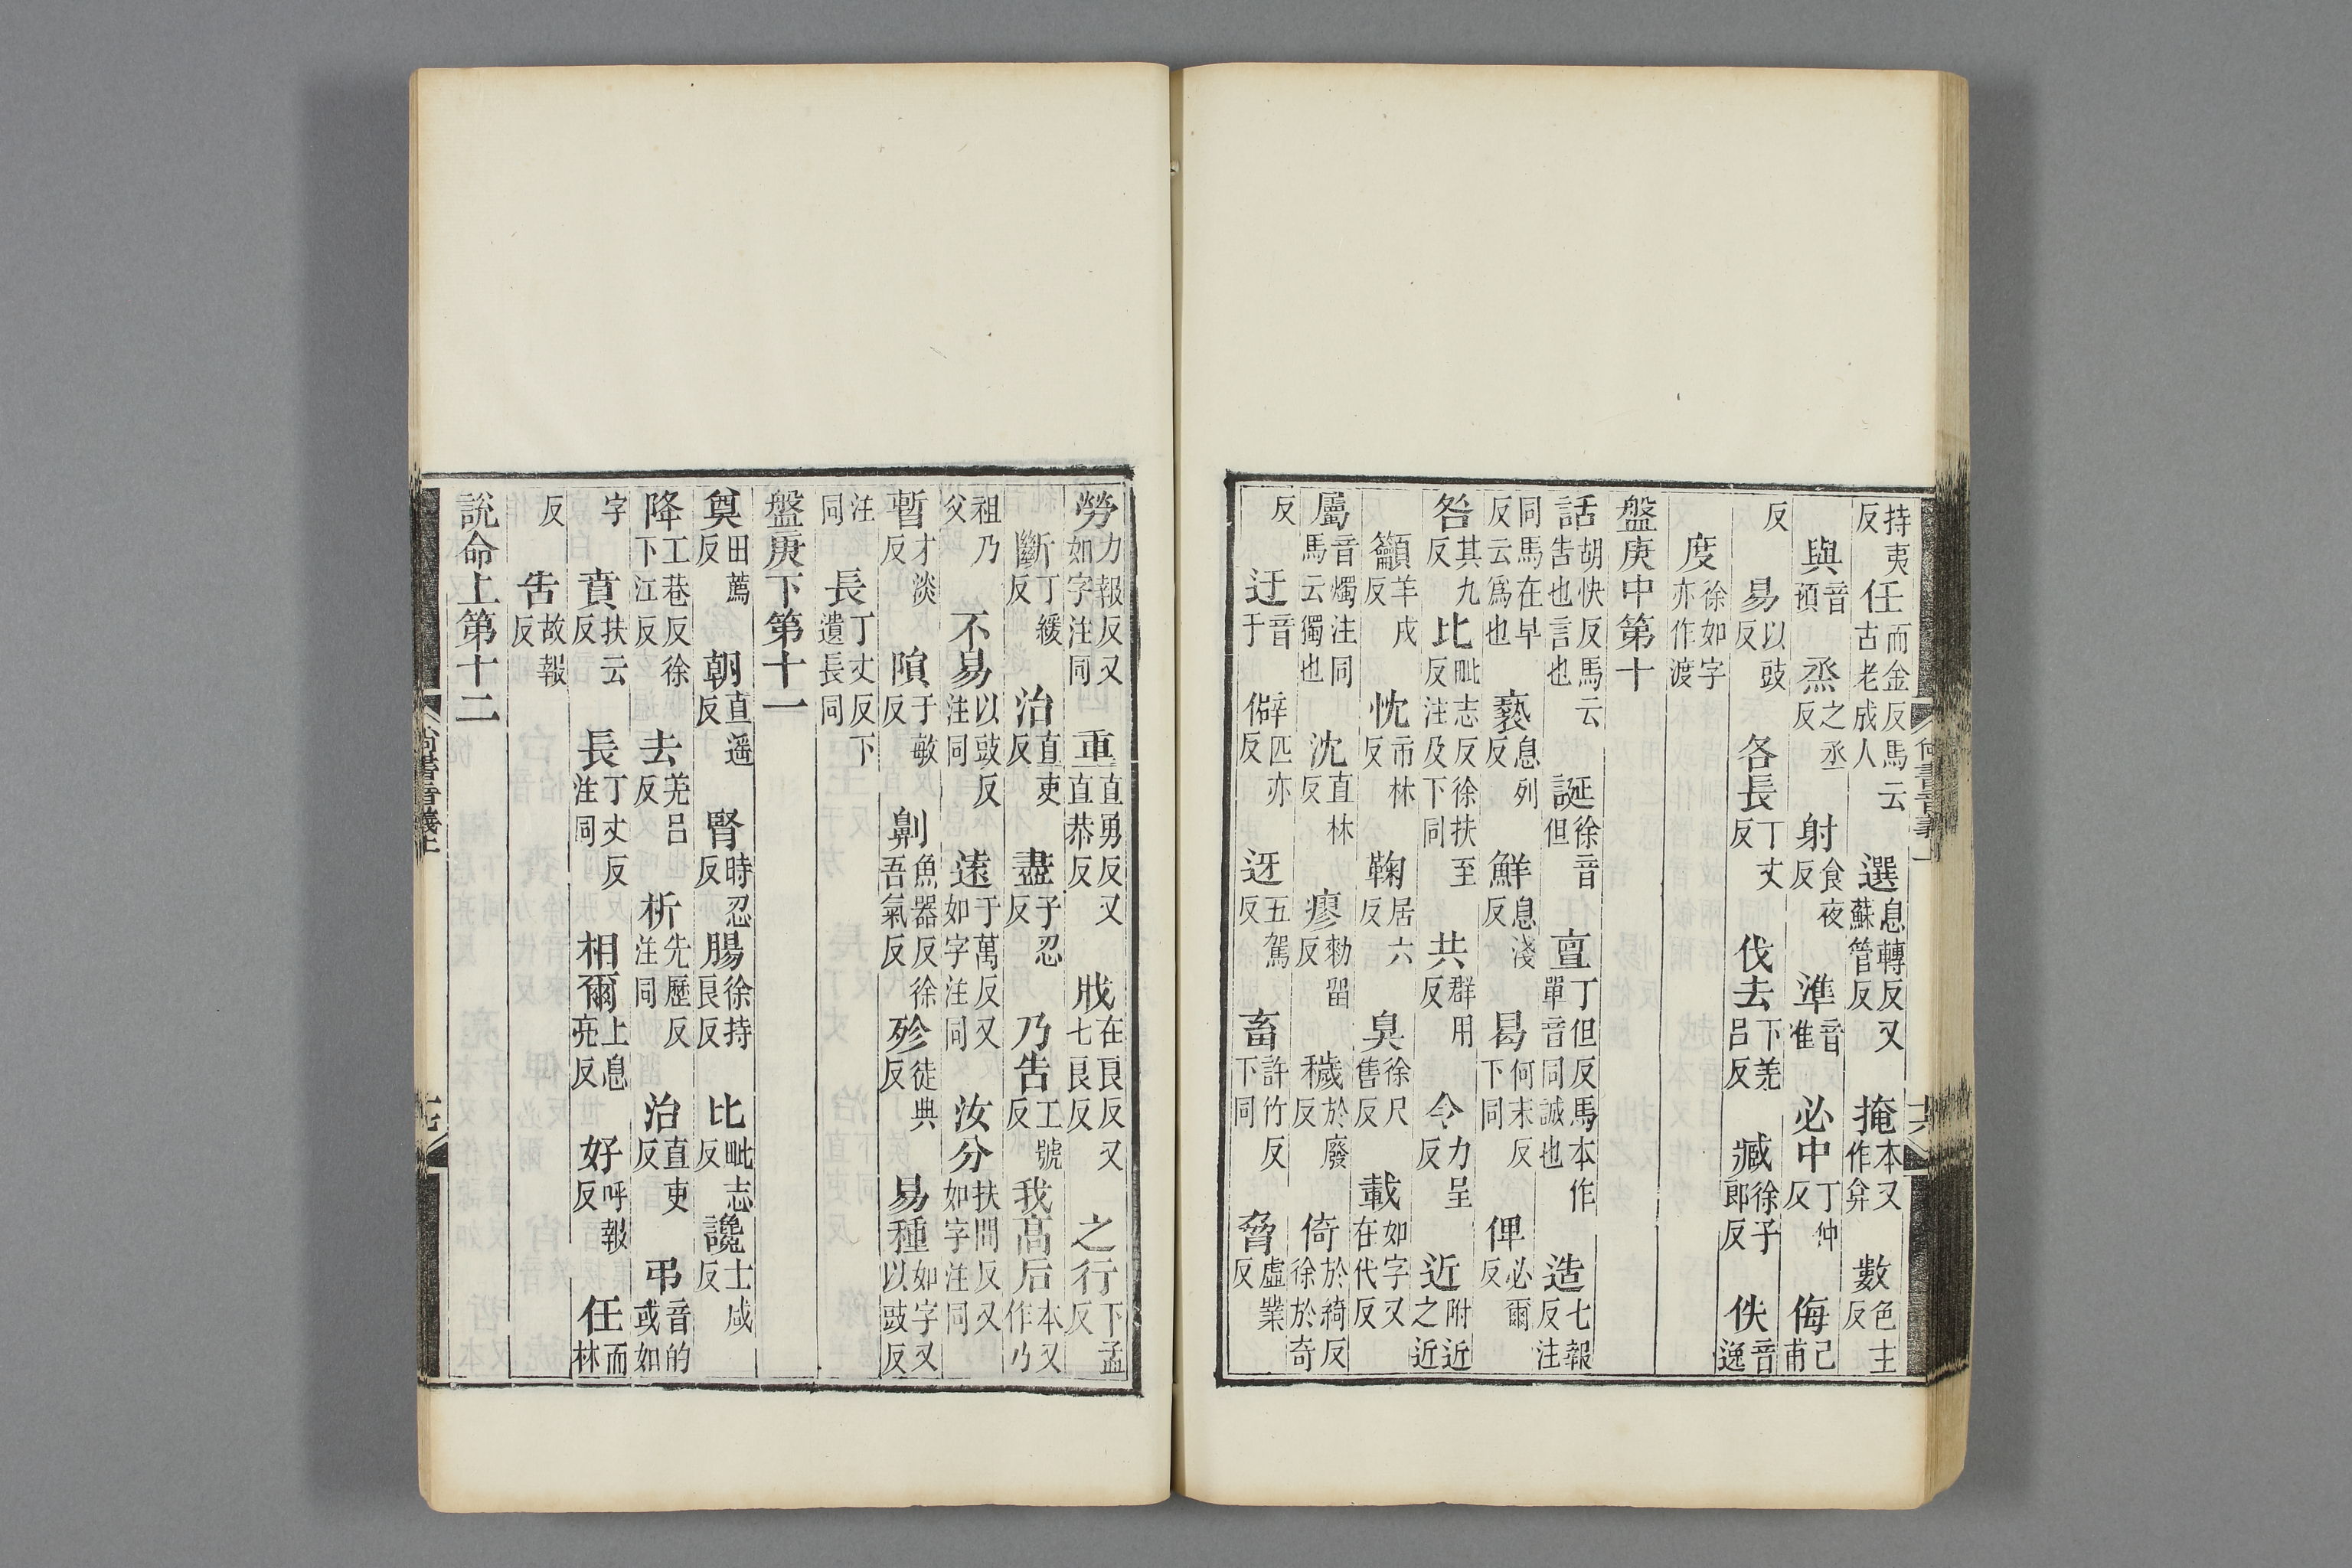 持夷反 任而金反馬云古老成人 選息轉反又蘇管反 掩本又作弇 數色主反
與音預 烝之丞反 射食夜反 準音准 必中丁仲反 侮己甫
反 易以豉反 各長丁丈反 伐去下羌吕反 臧徐子郎反 佚音逸
度徐如字亦作渡
盤庚中第十
話胡快反馬云告也言也 誕徐音但 亶丁但反馬本作單音同誠也 造七報反注
同馬在早反云爲也 褻息列反 鮮息淺反 曷何末反下同 俾必爾反
咎其九反 比毗志反徐扶至反注及下同 共群用反 令力呈反 近附近之近
籲羊戍反 忱市林反 鞠居六反 臭徐尺售反 載如字又在代反
屬音燭注同馬云獨也 沈直林反 瘳勑留反 穢於廢反 倚於綺反徐於奇
反 迂音于 僻匹亦反 迓五駕反 畜許竹反下同 脅虛業反
勞力報反又如字注同 重直勇反又直恭反 戕在良反又七良反 之行下孟反
斷丁緩反 治直吏反 盡子忍反 乃告工號反 我高后本又作乃
祖乃父 不易以豉反注同 遠于萬反又如字注同 汝分扶問反又如字注同
暫才淡反 隕于敏反 劓魚器反徐吾氣反 殄徒典反 易種如字又以豉反
注同 長丁丈反下遺長同
盤庚下第十一
奠田薦反 朝直遥反 腎時忍反 腸徐持良反 比毗志反 讒士咸反
降工巷反徐下江反 去羌吕反 析先歷反注同 治直吏反 弔音的或如
字 賁扶云反 長丁丈反注同 相爾上息亮反 好呼報反 任而林
反 告故報反
說命上第十二
尚書音義上